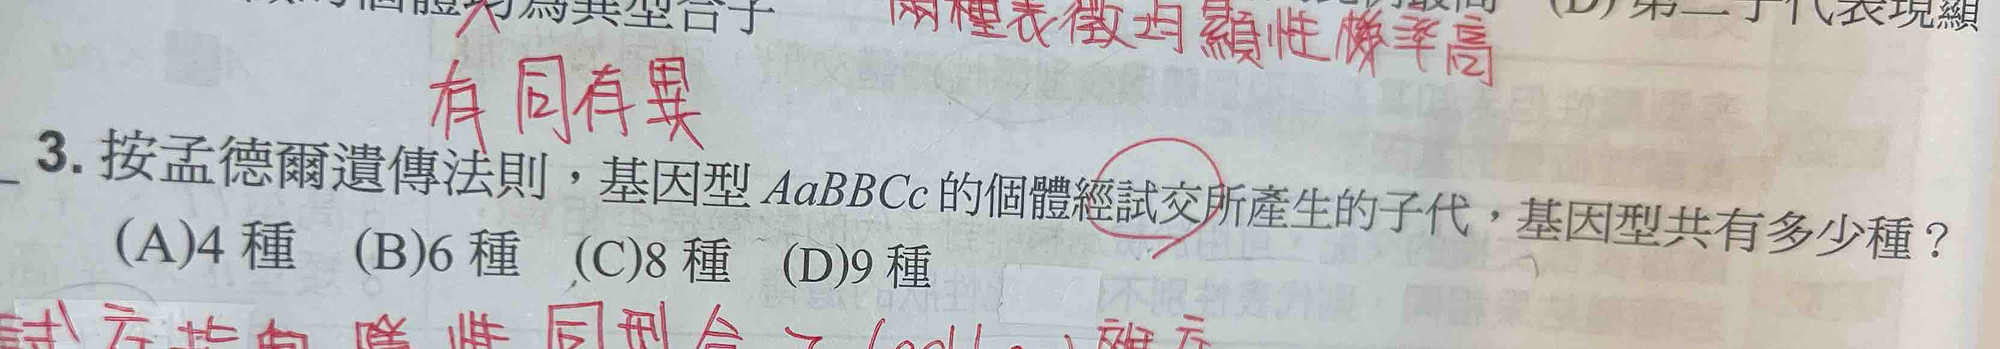 個體均為異型合子
兩種表徵均顯性機率高
(D)第二子代表現顯
有同有異
3. 按孟德爾遺傳法則，基因型 AaBBCc 的個體經試交所產生的子代，基因型共有多少種？
(A)4 種 (B)6 種 (C)8 種 (D)9 種
試交指與隱性同型合子
雜交